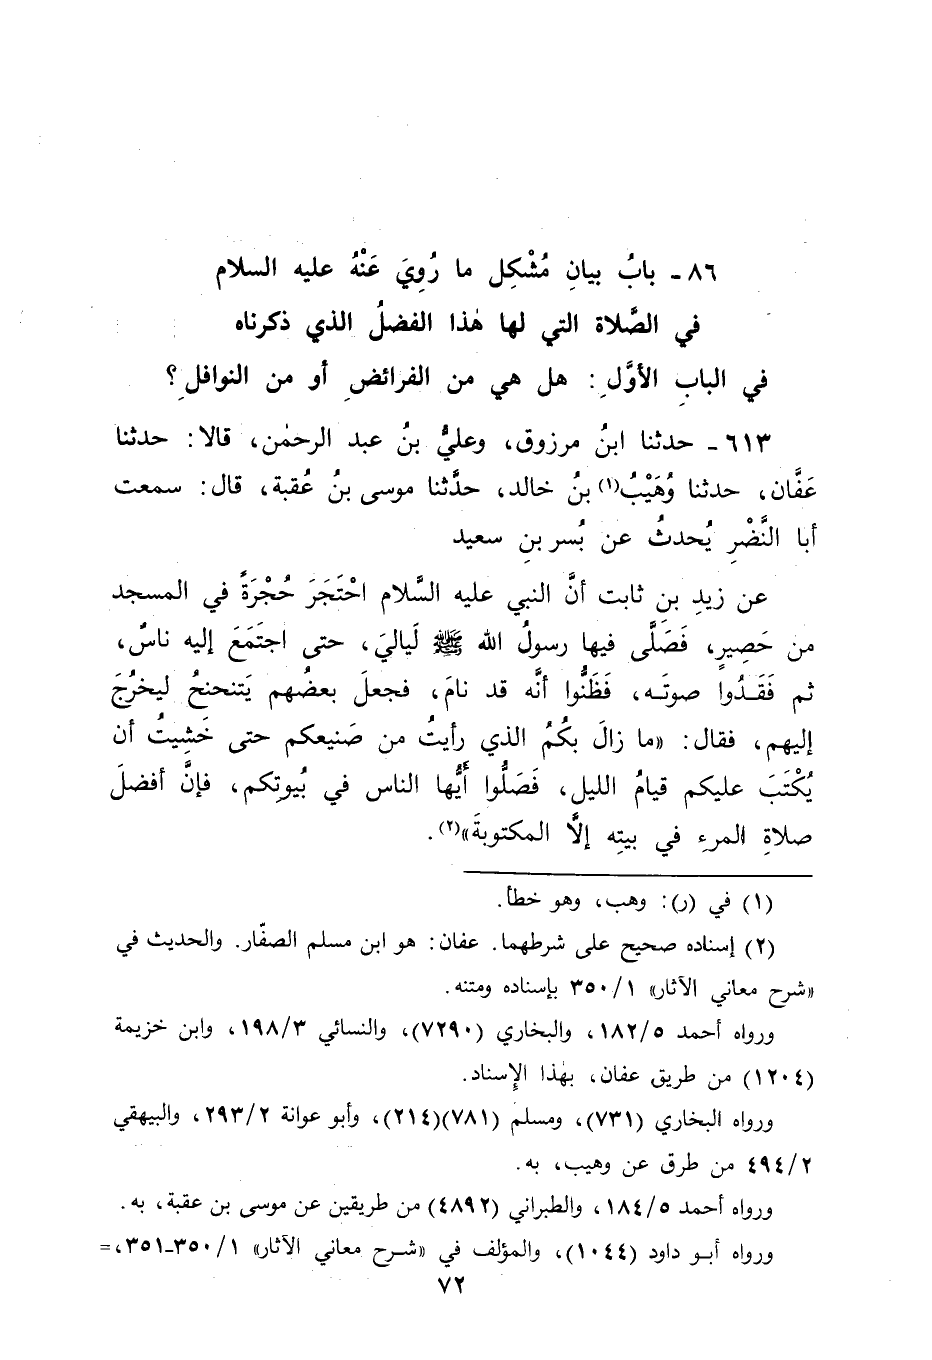 ٨٦ ـ بابُ بيانِ مُشْكِل ما رُوِيَ عَنْهُ عليه السلام
في الصَّلاة التي لها هٰذا الفضلُ الذي ذكرناه
في البابِ الأوَّلِ: هل هي من الفرائضِ أو من النوافلِ؟
٦١٣ ـ حدثنا ابنُ مرزوق، وعليُّ بنُ عبد الرحمٰن، قالا: حدثنا
عَفَّان، حدثنا وُهَيْبُ(١) بنُ خالد، حدَّثنا موسى بنُ عُقبة، قال: سمعت
أبا النَّضْرِ يُحدثُ عن بُسر بنِ سعيد
عن زيدِ بنِ ثابت أنَّ النبي عليه السَّلام احْتَجَرَ حُجْرَةً في المسجد
من حَصِيرٍ، فَصَلَّى فيها رسولُ الله ﷺ لَياليَ، حتى اجتَمَعَ إليه ناسٌ،
ثم فَقَدُوا صوتَه، فَظَنُّوا أنَّه قد نامَ، فجعلَ بعضُهم يَتنحنحُ ليخرُجَ
إليهم، فقال: «ما زالَ بكُمُ الذي رأيتُ من صَنيعكم حتى خَشِيتُ أن
يُكْتَبَ عليكم قيامُ الليل، فَصَلُّوا أيُّها الناس في بُيوتِكم، فإنَّ أفضلَ
صلاةِ المرءِ في بيتِه إلَّا المكتوبةَ»(٢).
(١) في (ر): وهب، وهو خطأ.
(٢) إسناده صحيح على شرطهما. عفان: هو ابن مسلم الصفّار. والحديث في
«شرح معاني الآثار» ٣٥٠/١ بإسناده ومتنه.
ورواه أحمد ١٨٢/٥، والبخاري (٧٢٩٠)، والنسائي ١٩٨/٣، وابن خزيمة
(١٢٠٤) من طريق عفان، بهٰذا الإسناد.
ورواه البخاري (٧٣١)، ومسلم (٧٨١)(٢١٤)، وأبو عوانة ٢٩٣/٢، والبيهقي
٤٩٤/٢ من طرق عن وهيب، به.
ورواه أحمد ١٨٤/٥، والطبراني (٤٨٩٢) من طريقين عن موسى بن عقبة، به.
ورواه أبو داود (١٠٤٤)، والمؤلف في «شرح معاني الآثار» ٣٥٠/١ـ٣٥١، =
٧٢